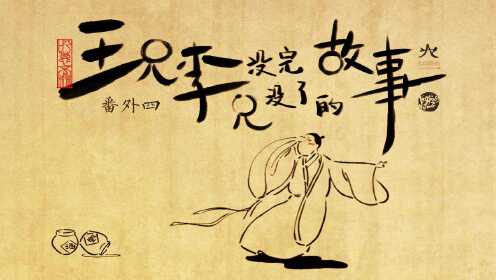 王兄李兄没完没了的故事
番外四
酒